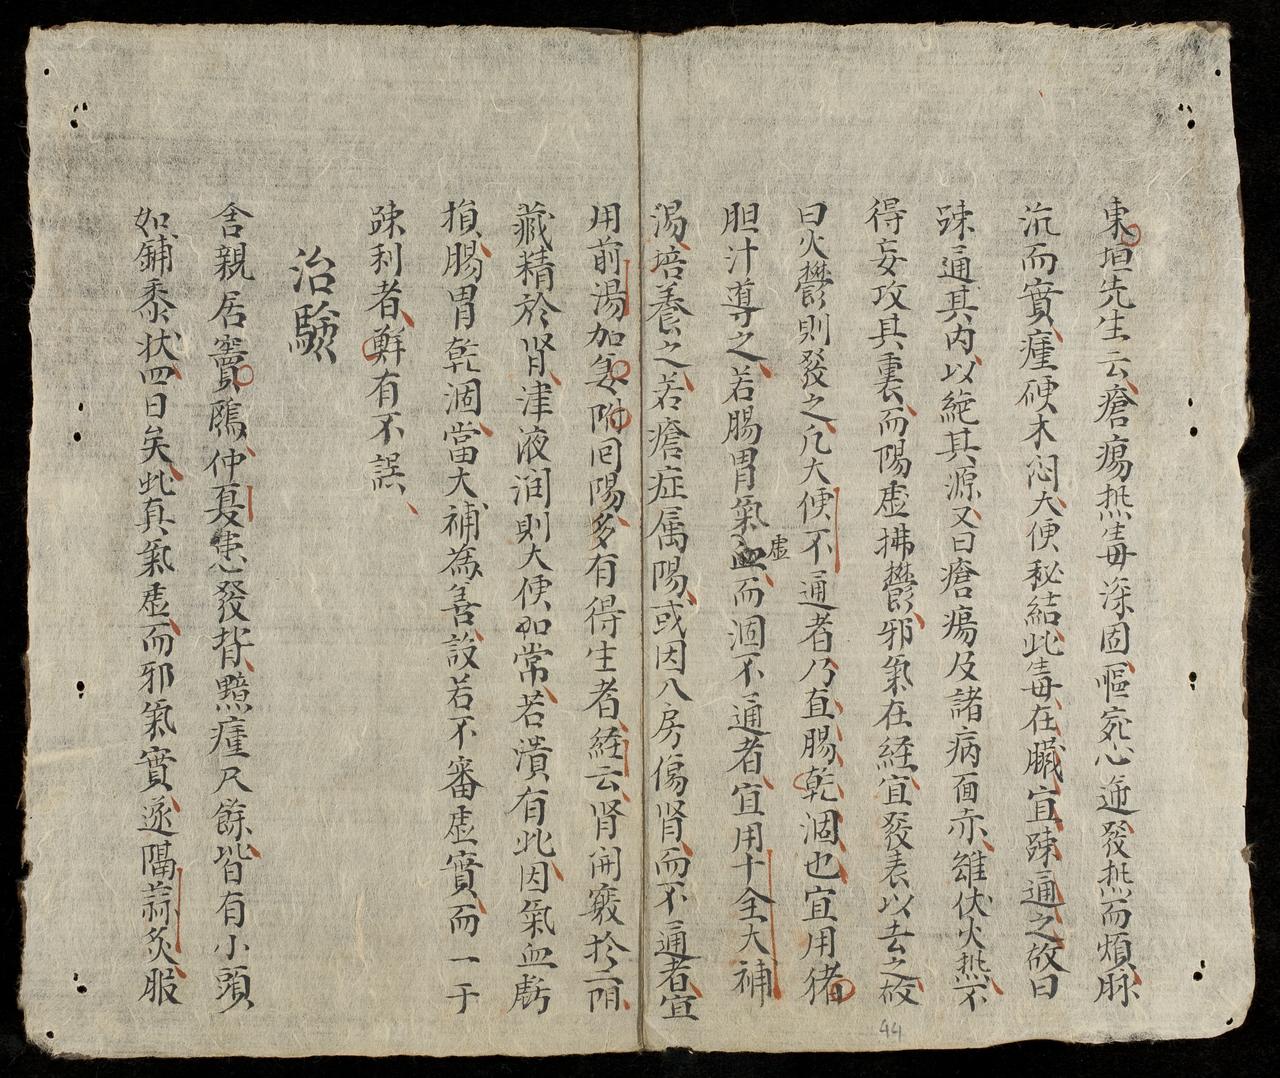 東垣先生云瘡瘍热毒深固嘔宛心逆發热而煩脉
沉而實瘇硬木闷大便秘結此毒在臓宜疎通之故曰
疎通其内以絶其源又曰瘡瘍及諸病面赤雖伏火热不
得妄攻其裏而陽虚拂欝邪氣在経宜發表以去之故
曰火欝則發之凡大便不通者乃直腸乾涸也宜用猪
胆汁導之若腸胃氣血虚而涸不通者宜用十全大補
湯培養之若瘡症属陽或因入房傷肾而不通者宜
用前湯加姜附囘陽多有得生者経云肾開竅於二阴
藏精於肾津液润則大便如常若潰有此因氣血虧
損腸胃乾涸當大補為善設若不審虚實而一于
疎利者鮮有不誤
治驗
舍親居竇鴈仲夏患發背黯瘇尺餘皆有小頭
如鋪黍状四日矣此真氣虚而邪氣實遂隔蒜灸服
44